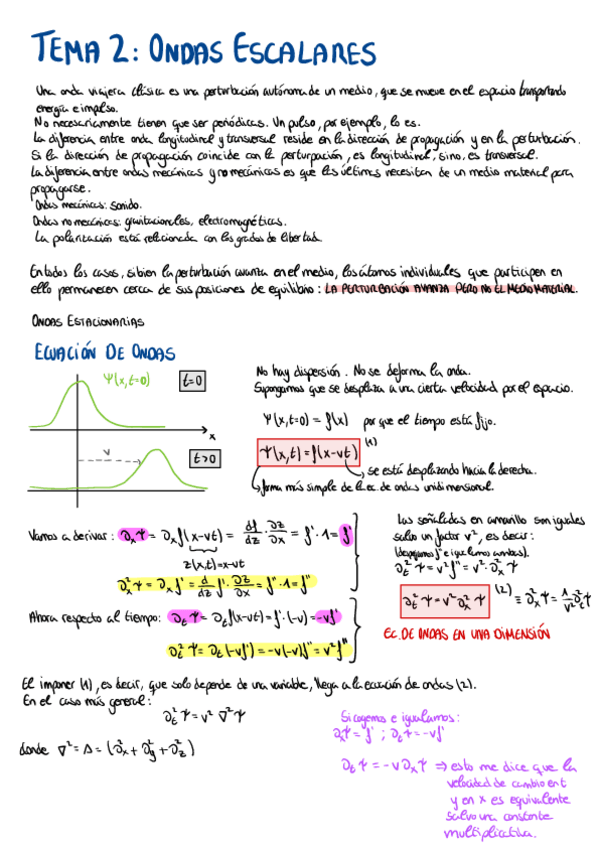 TEMA 2: ONDAS ESCALARES
Una onda viajera clásica es una perturbación autónoma de un medio, que se mueve en el espacio transportando
energía e impulso.
No necesariamente tienen que ser periódicas. Un pulso, por ejemplo, lo es.
La diferencia entre onda longitudinal y transversal reside en la dirección de propagación y en la perturbación.
Si la dirección de propagación coincide con la perturpación, es longitudinal, sino, es transversal.
La diferencia entre ondas mecánicas y no mecánicas es que las últimas necesitan de un medio material para
propagarse.
Ondas mecánicas: sonido.
Ondas no mecánicas: gravitacionales, electromagnéticas.
La polarización está relacionada con los grados de libertad.
En todos los casos, si bien la perturbación avanza en el medio, los átomos individuales que participen en
ello permanecen cerca de sus posiciones de equilibrio: LA PERTURBACIÓN AVANZA PERO NO EL MEDIO MATERIAL.
ONDAS ESTACIONARIAS
ECUACIÓN DE ONDAS
Ψ(x,t=0) t=0
x
v t>0
No hay dispersión. No se deforma la onda.
Supongamos que se desplaza a una cierta velocidad por el espacio.
Ψ(x,t=0) = f(x) porque el tiempo está fijo.
Ψ(x,t) = f(x-vt) (1)
se está desplazando hacia la derecha.
forma más simple de la ec. de ondas unidimensional.
Vamos a derivar: ∂xΨ = ∂x f(x-vt) = df/dz · ∂z/∂x = f' · 1 = f'
z(x,t)=x-vt
∂²xΨ = ∂x f' = d/dz f' · ∂z/∂x = f'' · 1 = f''
Ahora respecto al tiempo: ∂tΨ = ∂t f(x-vt) = f' · (-v) = -vf'
∂²tΨ = ∂t(-vf') = -v(-v)f'' = v²f''
Las señaladas en amarillo son iguales
salvo un factor v², es decir:
(despejamos f'' e igualamos ambas).
∂²tΨ = v²f'' = v²·∂²xΨ
∂²tΨ = v²∂²xΨ (2) ≡ ∂²xΨ = 1/v² ∂²tΨ
EC. DE ONDAS EN UNA DIMENSIÓN
El imponer (1), es decir, que solo depende de una variable, llega a la ecuación de ondas (2).
En el caso más general:
∂²tΨ = v² ∇²Ψ
donde ∇² = Δ = (∂²x + ∂²y + ∂²z)
Si cogemos e igualamos:
∂xΨ = f' ; ∂tΨ = -vf'
∂tΨ = -v∂xΨ ⇒ esto me dice que la
velocidad de cambio en t
y en x es equivalente
salvo una constante
multiplicativa.